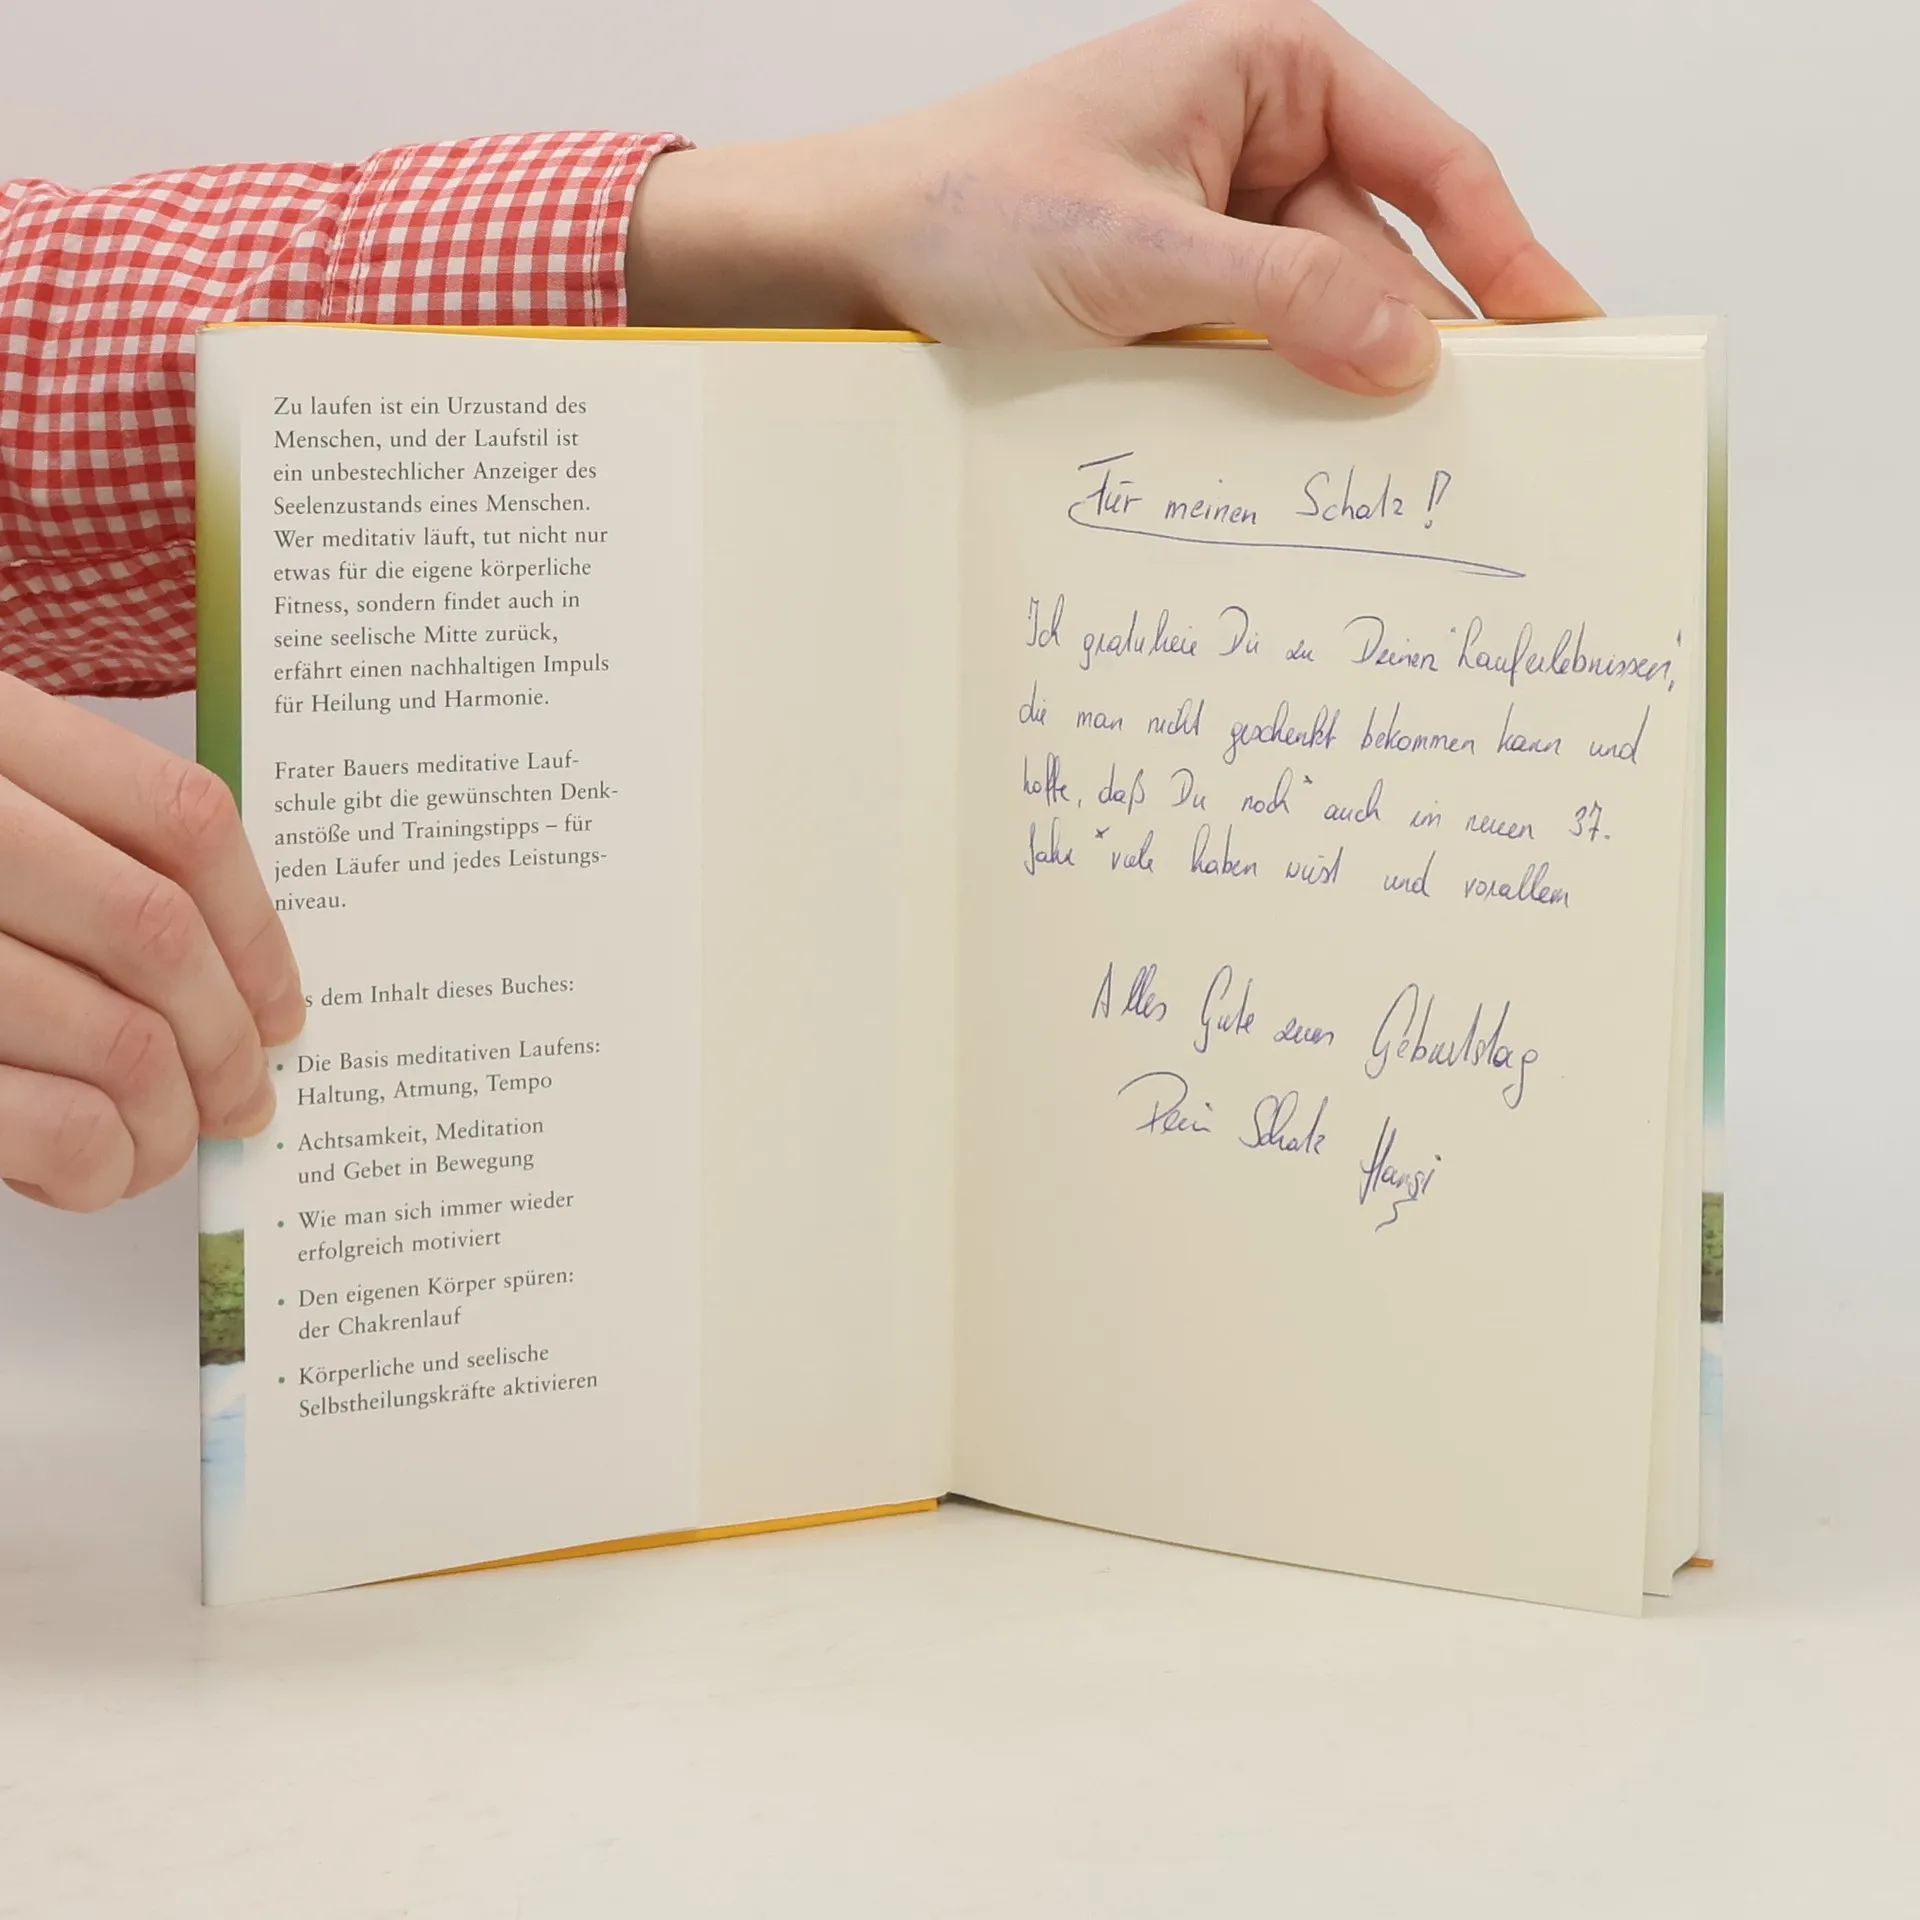 Zu laufen ist ein Urzustand des
Menschen, und der Laufstil ist
ein unbestechlicher Anzeiger des
Seelenzustands eines Menschen.
Wer meditativ läuft, tut nicht nur
etwas für die eigene körperliche
Fitness, sondern findet auch in
seine seelische Mitte zurück,
erfährt einen nachhaltigen Impuls
für Heilung und Harmonie.
Frater Bauers meditative Lauf-
schule gibt die gewünschten Denk-
anstöße und Trainingstipps – für
jeden Läufer und jedes Leistungs-
niveau.
s dem Inhalt dieses Buches:
• Die Basis meditativen Laufens:
Haltung, Atmung, Tempo
• Achtsamkeit, Meditation
und Gebet in Bewegung
• Wie man sich immer wieder
erfolgreich motiviert
• Den eigenen Körper spüren:
der Chakrenlauf
• Körperliche und seelische
Selbstheilungskräfte aktivieren
Für meinen Schatz!
Ich gratuliere Dir zu Deinen "Lauferlebnissen",
die man nicht geschenkt bekommen kann und
hoffe, daß Du noch * auch im neuen 37.
Jahr * viele haben wirst und vorallem
Alles Gute zum Geburtstag
Dein Schatz